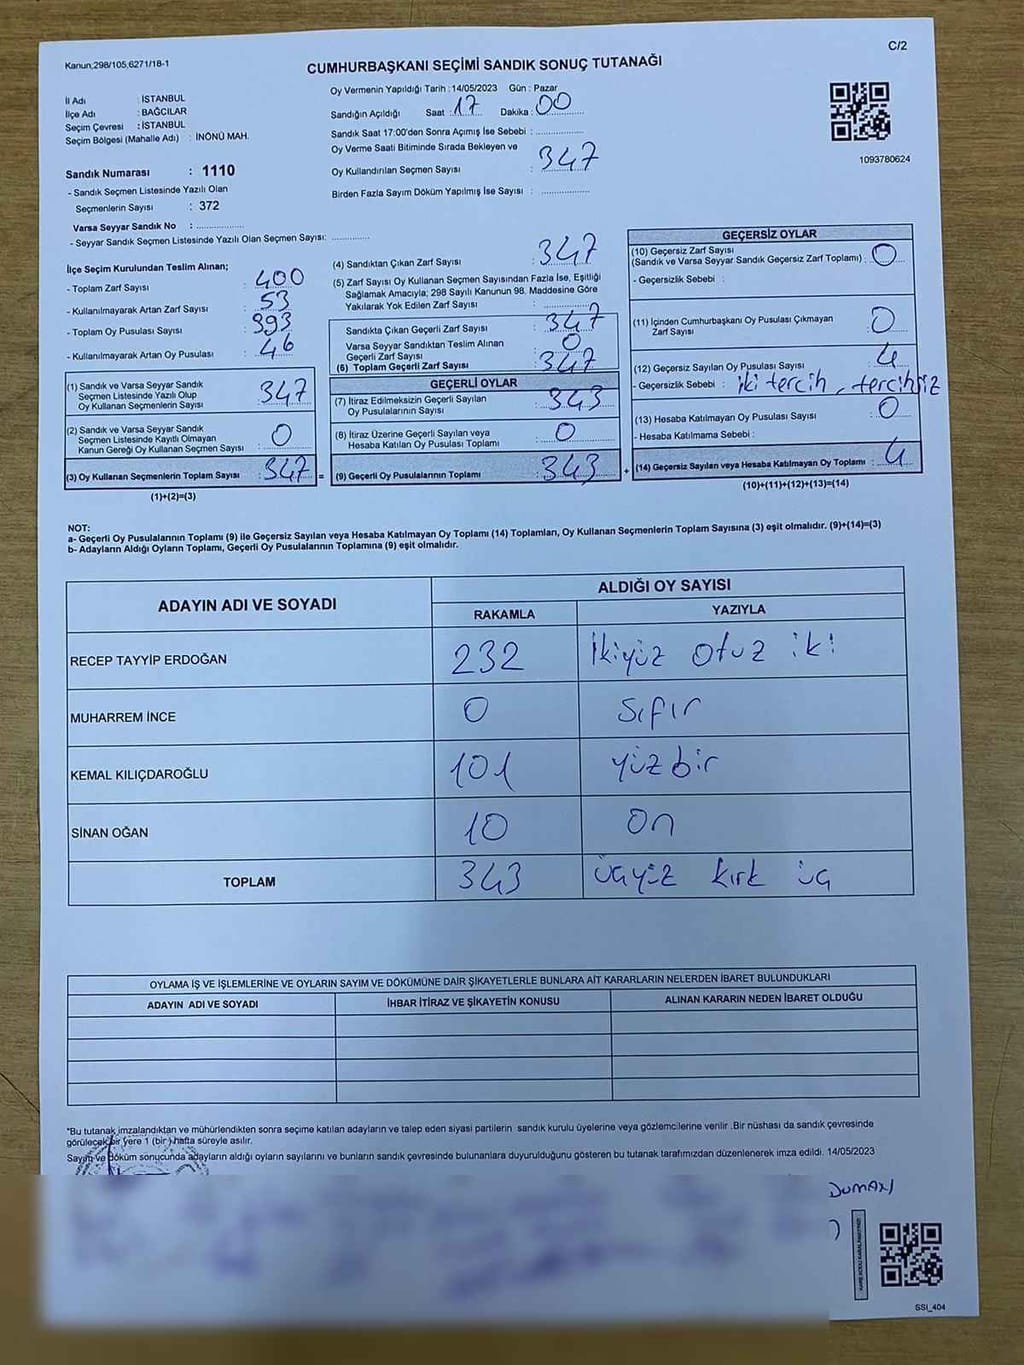 C/2
Kanun,298/105,6271/18-1
CUMHURBAŞKANI SEÇİMİ SANDIK SONUÇ TUTANAĞI
İl Adı : İSTANBUL
İlçe Adı : BAĞCILAR
Seçim Çevresi : İSTANBUL
Seçim Bölgesi (Mahalle Adı) : İNÖNÜ MAH.
Sandık Numarası : 1110
- Sandık Seçmen Listesinde Yazılı Olan
Seçmenlerin Sayısı : 372
Varsa Seyyar Sandık No : ................
- Seyyar Sandık Seçmen Listesinde Yazılı Olan Seçmen Sayısı: ............
Oy Vermenin Yapıldığı Tarih : 14/05/2023 Gün : Pazar
Sandığın Açıldığı Saat : 17 Dakika : 00
Sandık Saat 17:00'den Sonra Açımış İse Sebebi : ................
Oy Verme Saati Bitiminde Sırada Bekleyen ve
Oy Kullandırılan Seçmen Sayısı : 347
Birden Fazla Sayım Döküm Yapılmış İse Sayısı : ................
1093780624
İlçe Seçim Kurulundan Teslim Alınan;
- Toplam Zarf Sayısı : 400
- Kullanılmayarak Artan Zarf Sayısı : 53
- Toplam Oy Pusulası Sayısı : 393
- Kullanılmayarak Artan Oy Pusulası : 46
(1) Sandık ve Varsa Seyyar Sandık
Seçmen Listesinde Yazılı Olup
Oy Kullanan Seçmenlerin Sayısı : 347
(2) Sandık ve Varsa Seyyar Sandık
Seçmen Listesinde Kayıtlı Olmayan
Kanun Gereği Oy Kullanan Seçmen Sayısı : 0
(3) Oy Kullanan Seçmenlerin Toplam Sayısı : 347 =
(1)+(2)=(3)
(4) Sandıktan Çıkan Zarf Sayısı : 347
(5) Zarf Sayısı Oy Kullanan Seçmen Sayısından Fazla İse, Eşitliği
Sağlamak Amacıyla; 298 Sayılı Kanunun 98. Maddesine Göre
Yakılarak Yok Edilen Zarf Sayısı : ................
Sandıkta Çıkan Geçerli Zarf Sayısı : 347
Varsa Seyyar Sandıktan Teslim Alınan
Geçerli Zarf Sayısı : 0
(6) Toplam Geçerli Zarf Sayısı : 347
GEÇERLİ OYLAR
(7) İtiraz Edilmeksizin Geçerli Sayılan
Oy Pusulalarının Sayısı : 343
(8) İtiraz Üzerine Geçerli Sayılan veya
Hesaba Katılan Oy Pusulası Toplamı : 0
(9) Geçerli Oy Pusulalarının Toplamı : 343 +
GEÇERSİZ OYLAR
(10) Geçersiz Zarf Sayısı
(Sandık ve Varsa Seyyar Sandık Geçersiz Zarf Toplamı) : 0
- Geçersizlik Sebebi :
(11) İçinden Cumhurbaşkanı Oy Pusulası Çıkmayan
Zarf Sayısı : 0
(12) Geçersiz Sayılan Oy Pusulası Sayısı : 4
- Geçersizlik Sebebi : iki tercih, tercihsiz
(13) Hesaba Katılmayan Oy Pusulası Sayısı : 0
- Hesaba Katılmama Sebebi :
(14) Geçersiz Sayılan veya Hesaba Katılmayan Oy Toplamı : 4
(10)+(11)+(12)+(13)=(14)
NOT:
a- Geçerli Oy Pusulalarının Toplamı (9) ile Geçersiz Sayılan veya Hesaba Katılmayan Oy Toplamı (14) Toplamları, Oy Kullanan Seçmenlerin Toplam Sayısına (3) eşit olmalıdır. (9)+(14)=(3)
b- Adayların Aldığı Oyların Toplamı, Geçerli Oy Pusulalarının Toplamına (9) eşit olmalıdır.
ADAYIN ADI VE SOYADI ALDIĞI OY SAYISI
RAKAMLA YAZIYLA
RECEP TAYYİP ERDOĞAN 232 İkiyüz otuz iki
MUHARREM İNCE 0 sıfır
KEMAL KILIÇDAROĞLU 101 yüzbir
SİNAN OĞAN 10 on
TOPLAM 343 üçyüz kırk üç
OYLAMA İŞ VE İŞLEMLERİNE VE OYLARIN SAYIM VE DÖKÜMÜNE DAİR ŞİKAYETLERLE BUNLARA AİT KARARLARIN NELERDEN İBARET BULUNDUKLARI
ADAYIN ADI VE SOYADI İHBAR İTİRAZ VE ŞİKAYETİN KONUSU ALINAN KARARIN NEDEN İBARET OLDUĞU
*Bu tutanak imzalandıktan ve mühürlendikten sonra seçime katılan adayların ve talep eden siyasi partilerin sandık kurulu üyelerine veya gözlemcilerine verilir .Bir nüshası da sandık çevresinde
görülecek bir yere 1 (bir) hafta süreyle asılır.
Sayım ve Döküm sonucunda adayların aldığı oyların sayılarını ve bunların sandık çevresinde bulunanlara duyurulduğunu gösteren bu tutanak tarafımızdan düzenlenerek imza edildi. 14/05/2023
SSI_404